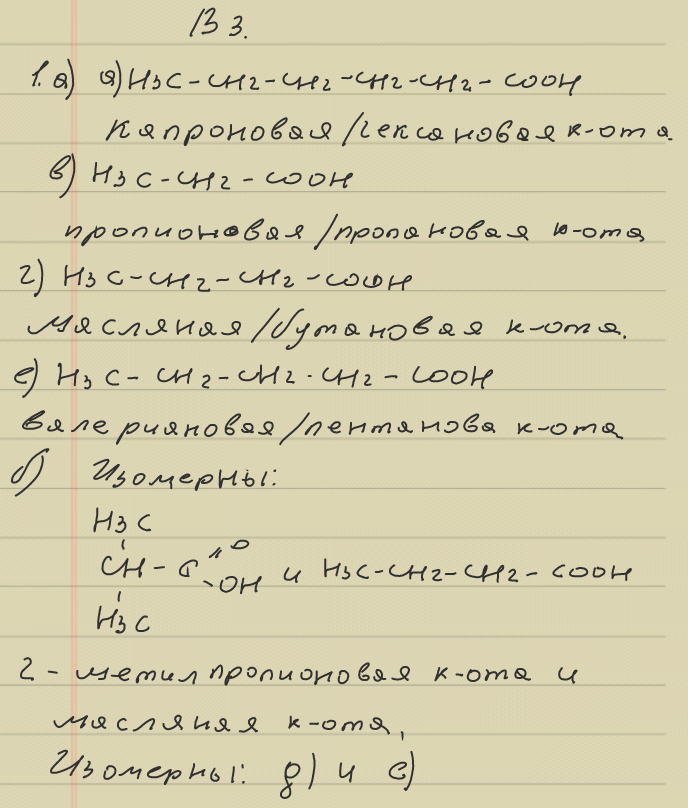 В 3.
1. а) а) H3C-CH2-CH2-CH2-CH2-COOH
Капроновая/гексановая к-ота
в) H3C-CH2-COOH
пропионовая/пропановая к-ота
г) H3C-CH2-CH2-COOH
Масляная/бутановая к-ота.
е) H3C-CH2-CH2-CH2-COOH
валериановая/пентановая к-ота
б) Изомерны:
H3C
CH-C=O -OH и H3C-CH2-CH2-COOH
H3C
2-метилпропионовая к-ота и
масляная к-ота,
Изомерны: д) и е)